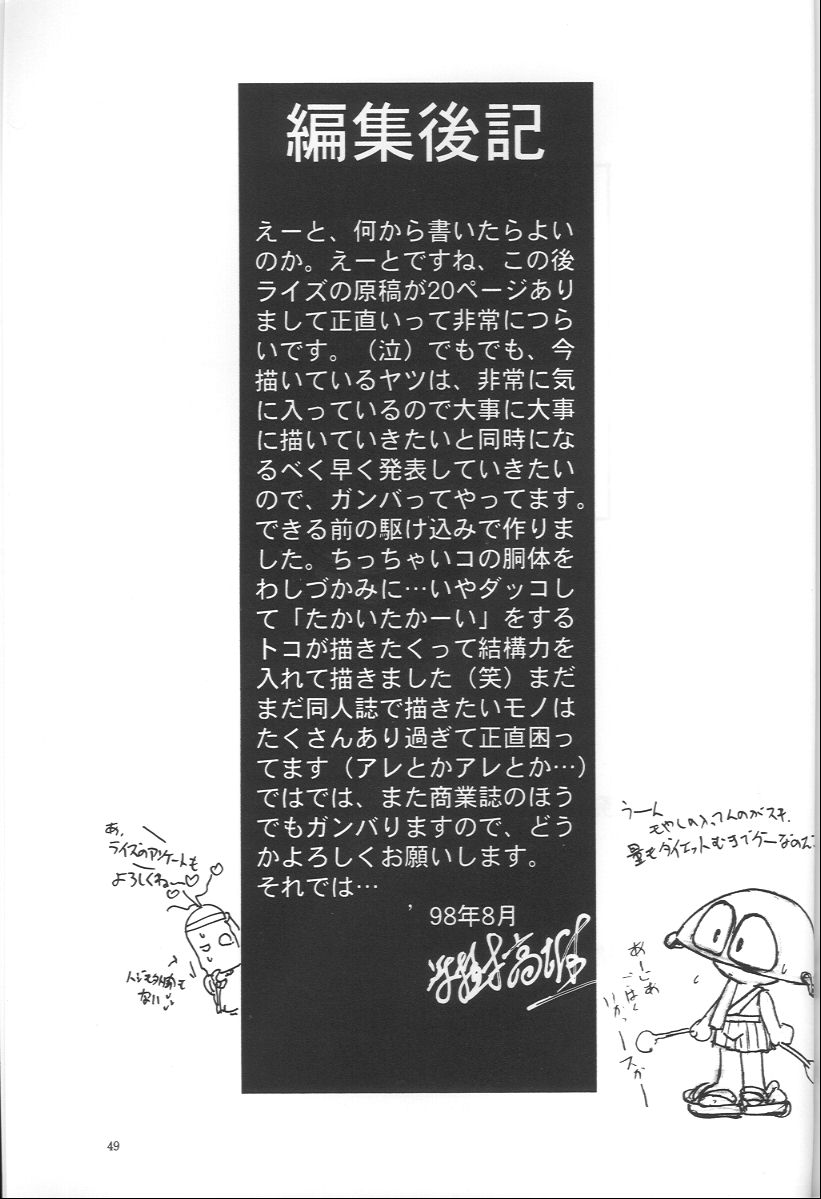 編集後記
えーと、何から書いたらよい
のか。えーとですね、この後
ライズの原稿が20ページあり
まして正直いって非常につら
いです。（泣）でもでも、今
描いているヤツは、非常に気
に入っているので大事に大事
に描いていきたいと同時にな
るべく早く発表していきたい
ので、ガンバってやってます。
できる前の駆け込みで作りま
した。ちっちゃいコの胴体を
わしづかみに…いやダッコし
て「たかいたかーい」をする
トコが描きたくって結構力を
入れて描きました（笑）まだ
まだ同人誌で描きたいモノは
たくさんあり過ぎて正直困っ
てます（アレとかアレとか…）
ではでは、また商業誌のほう
でもガンバりますので、どう
かよろしくお願いします。
それでは…
’98年8月
あ、
ライズのアンケートも
よろしくね〜♡
うーん
49